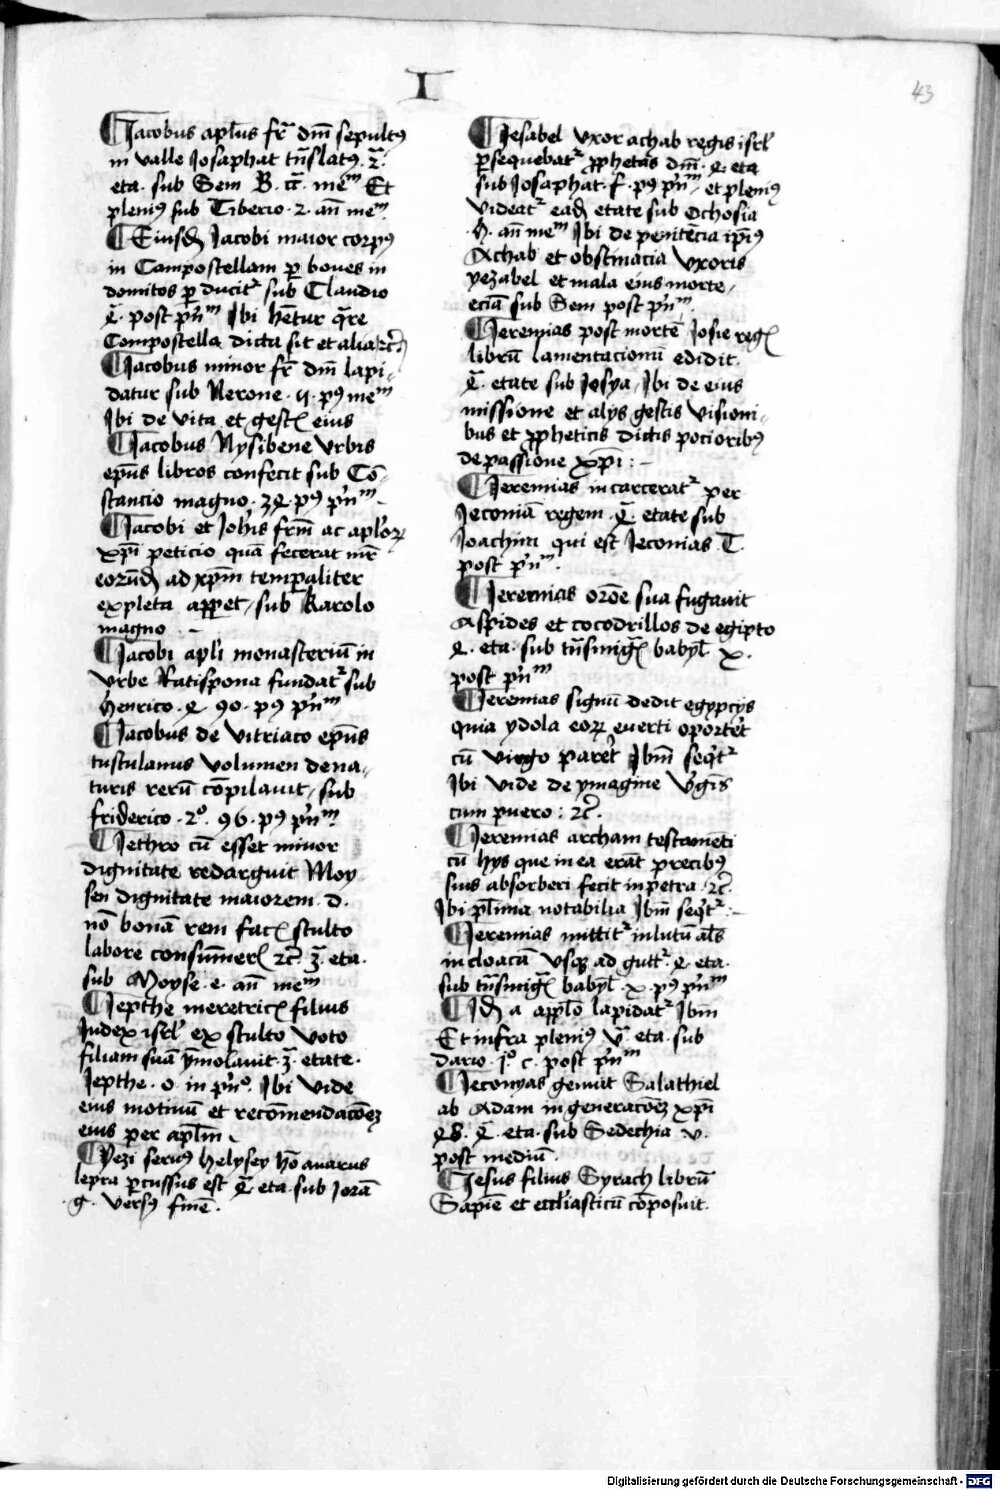 I
43
Jacobus apl̄us fr̄ dn̄i sepultꝰ
in valle Josaphat tn̄slatꝰ · 2ā
eta · sub Sem B. me͞m Et
pleniꝰ sub Tiberio · 2 · an̄ me͞m
Eiusdē Jacobi maior corpꝰ
in Campostellam per boues in
domitos per ducit᷑ sub Claudio
post prin͞m Ibi hētur qr̄e
Compostella dicta sit et alia ⁊c̄
Jacobus minor fr̄ dn̄i lapi-
datur sub Nerone · pꝰ me͞m
Ibi de vita et gestꝭ eius
Jacobus Nysibene vrbis
ep̄us libros confecit sub Cō-
stancio magno · pꝰ prin͞m
Jacobi et Joh̄is frm̄ ac apl̄oꝝ
xp̄i peticio quā fecerat mr̄
eorūdē ad xp̄m temꝑaliter
expleta apparet / sub Karolo
magno
Jacobi apl̄i monasteriū in
vrbe Ratispona fundat᷑ sub
henrico · 4 · 90 · pꝰ prin͞m
Jacobus de Vitriaco ep̄us
tusculanus volumen de na-
turis rerū cōpilauit / sub
friderico · 2º · 96 · pꝰ prin͞m
Jethro cū esset minor
dignitate redarguit Moy-
sen dignitate maiorem · d.
nō bonā rem facꝭ stulto
labore consum̄erꝭ ⁊c̄ · 3ā · eta ·
sub Moyse · e · an̄ me͞m
Jepthe meretricꝭ filius
Judex isrl̄ ex stulto voto
filiam suā ym̄olauit · 3ā · etate ·
Jepthe · o · in prinº · Ibi vide
eius motiuū et recōmendacōeꝫ
eius per apl̄m
Yezi seruꝰ helysey hō auarus
lepra percussus est 4ā eta · sub Jorā
· g · versꝰ finē ·
Jesabel vxor achab regis isrl̄
persequebat᷑ ꝓphetas dn̄i · 4 · eta
sub Josaphat · f · pꝰ prin͞m · et pleniꝰ
videat᷑ eadē etate sub Ochosia
· h · an̄ me͞m Ibi de penitēcia ip̄iꝰ
Achab et obstinacia vxoris
yezabel et mala eius morte /
eciā sub Sem post prin͞m
Jeremias post mortē Josie regꝭ
librū lamentacionū edidit.
4ā · etate sub Josya / Ibi de eius
missione et alijs gestis visioni-
bus et ꝓpheticis dictis pocioribꝰ
de passione xp̄i : –
Jeremias incarcerat᷑ per
Jeconiā regem · 4 · etate sub
Joachim qui est Jeconias T.
post prin͞m.
Jeremias orōe sua fugauit
Aspides et cocodrillos de egipto
4 · eta · sub tn̄smigrꝭ babyl̄ x ·
post prin͞m
Jeremias signū dedit egypcijs
quia ydola eoꝝ euerti oportet
cū virgo paret Ibm̄ seqt᷑
Ibi vide de ymagine v̓gīs
cum puero : ⁊c̄ ·
Jeremias archam testamēti
cū hijs que in ea erāt precibꝰ
suis absorberi fecit in petra · ⁊c̄ ·
Ibi pl̄ima notabilia Ibm̄ seqt᷑ : –
Jeremias mittit᷑ in lutū al̄s
in cloacā vsqꝫ ad gutt᷑ · 4 · eta ·
sub tn̄smigrꝭ babyl̄ · x · pꝰ prin͞m
Idē a appl̄o lapidat᷑ Ibm̄
Et infra pleniꝰ vā eta · sub
dario · jº · c · post prin͞m
Jeconyas genuit Salathiel
ab Adam in generacōeꝫ xp̄i
48 · 4ā · eta · sub Sedechia · v ·
post mediū ·
Jesus filius Syrach librū
Sapīe et ecclīasticū cōposuit ·
Digitalisierung gefördert durch die Deutsche Forschungsgemeinschaft - DFG